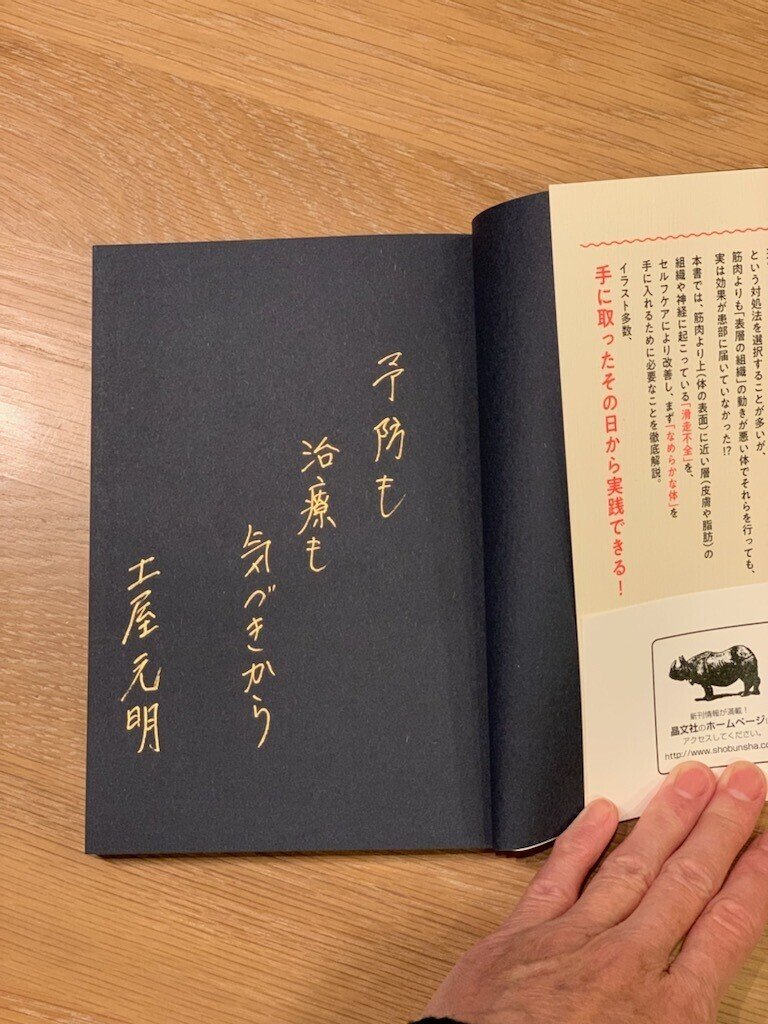 予防も
治療も
気づきから
土屋元明
という対処法を選択することが多いが、
筋肉よりも「表層の組織」の動きが悪い体でそれらを行っても、
実は効果が患部に届いていなかった!?
本書では、筋肉より上(体の表面)に近い層(皮膚や脂肪)の
組織や神経に起こっている「滑走不全」を、
セルフケアにより改善し、まず「なめらかな体」を
手に入れるために必要なことを徹底解説。
イラスト多数、
手に取ったその日から実践できる!
新刊情報が満載!
晶文社のホームページ
アクセスしてください。
http://www.shobunsha.co